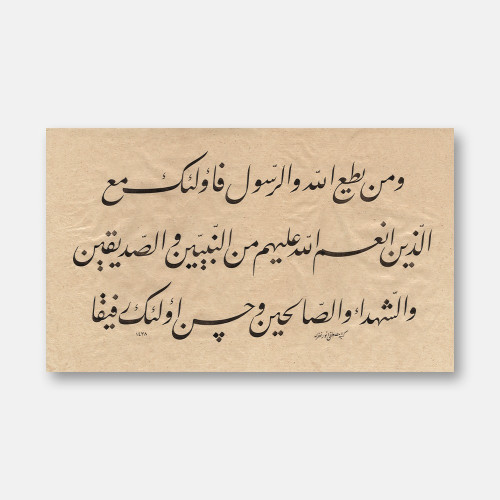 ومن يطع الله والرّسول فاؤلئك مع
الذين انعم الله عليهم من النّبيّين والصّديقين
والشّهداء والصّالحين وحسن اولئك رفيقا
١٤٣٨